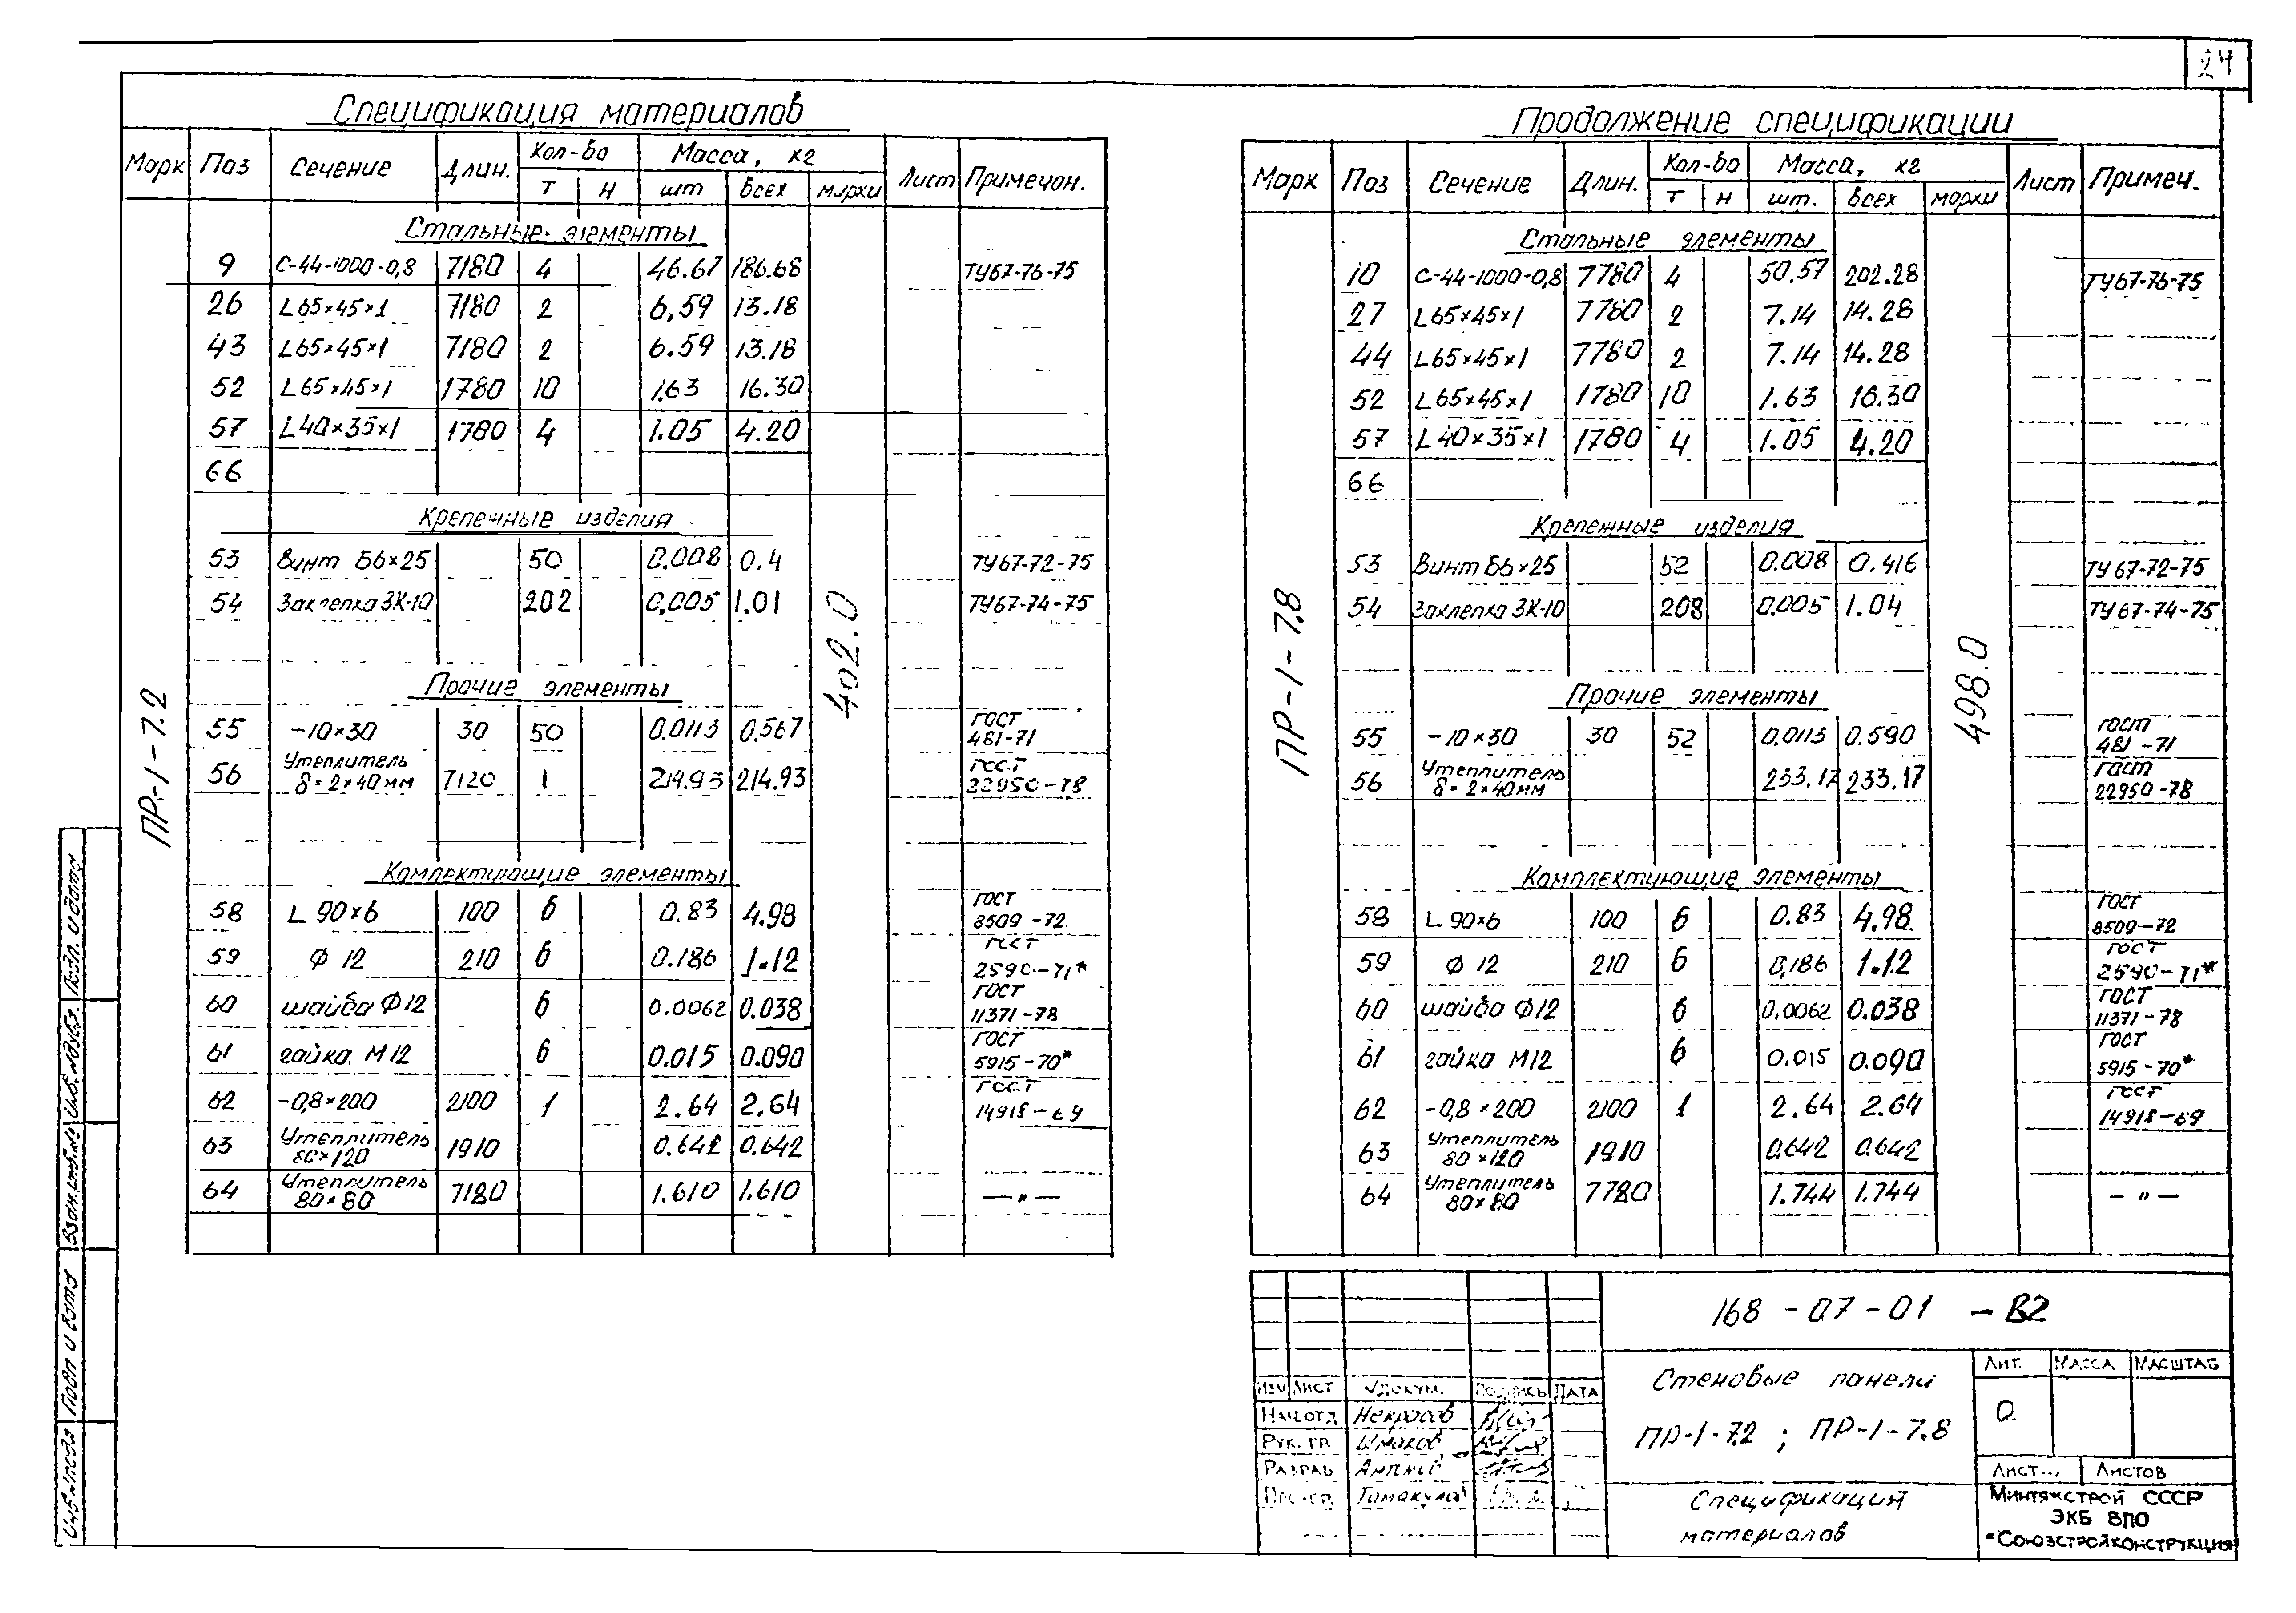 24
Спецификация материалов
Марк Поз Сечение Длин. Кол-во Масса, кг Лист Примечан.
т н шт всех марки
Стальные элементы
9 С-44-1000-0,8 7180 4 46.67 186.68 ТУ67-76-75
26 L65×45×1 7180 2 6,59 13.18
43 L65×45×1 7180 2 6.59 13.18
52 L65×45×1 1780 10 1.63 16.30
57 L40×35×1 1780 4 1.05 4.20
66
Крепежные изделия
53 Винт Б6×25 50 0.008 0.4 ТУ67-72-75
54 Заклепка ЗК-10 202 0,005 1.01 ТУ67-74-75
ПР-1-7.2
402.0
Прочие элементы
55 -10×30 30 50 0.0113 0.567 ГОСТ 481-71
56 Утеплитель δ=2×40мм 7120 1 214.93 214.93 ГОСТ 22950-78
Комплектующие элементы
58 L 90×6 100 6 0.83 4.98 ГОСТ 8509-72
59 Ф 12 210 6 0.186 1.12 ГОСТ 2590-71*
60 шайба Ф12 6 0.0062 0.038 ГОСТ 11371-78
61 гайка М12 6 0.015 0.090 ГОСТ 5915-70*
62 -0,8×200 2100 1 2.64 2.64 ГОСТ 14918-69
63 Утеплитель 80×120 1910 0.642 0.642
64 Утеплитель 80×80 7180 1.610 1.610 —"—
Продолжение спецификации
Марк Поз Сечение Длин. Кол-во Масса, кг Лист Примеч.
т н шт. всех марки
Стальные элементы
10 С-44-1000-0,8 7780 4 50.57 202.28 ТУ67-76-75
27 L65×45×1 7780 2 7.14 14.28
44 L65×45×1 7780 2 7.14 14.28
52 L65×45×1 1780 10 1.63 16.30
57 L40×35×1 1780 4 1.05 4.20
66
Крепежные изделия
53 Винт Б6×25 52 0.008 0.416 ТУ67-72-75
54 Заклепка ЗК-10 208 0.005 1.04 ТУ67-74-75
ПР-1-7.8
498.0
Прочие элементы
55 -10×30 30 52 0.0113 0.590 ГОСТ 481-71
56 Утеплитель δ=2×40мм 233.17 233.17 ГОСТ 22950-78
Комплектующие элементы
58 L 90×6 100 6 0.83 4.98 ГОСТ 8509-72
59 Ф 12 210 6 0,186 1.12 ГОСТ 2590-71*
60 шайба Ф12 6 0.0062 0.038 ГОСТ 11371-78
61 гайка М12 6 0.015 0.090 ГОСТ 5915-70*
62 -0,8×200 2100 1 2.64 2.64 ГОСТ 14918-69
63 Утеплитель 80×120 1910 0.642 0.642
64 Утеплитель 80×80 7780 1.744 1.744 —"—
168-07-01-В2
Стеновые панели
ПР-1-7.2 ; ПР-1-7.8
Спецификация
материалов
Лит. Масса Масштаб
О
Лист Листов
Минтяжстрой СССР
ЭКБ ВПО
"Союзстройконструкция
Изм Лист №докум. Подпись Дата
Нач.отд Некрасов
Рук. гр.
Разраб
Провер.
Подп. и дата
Инв.№дубл.
Взам.инв.№
Подп и дата
Инв.№подл